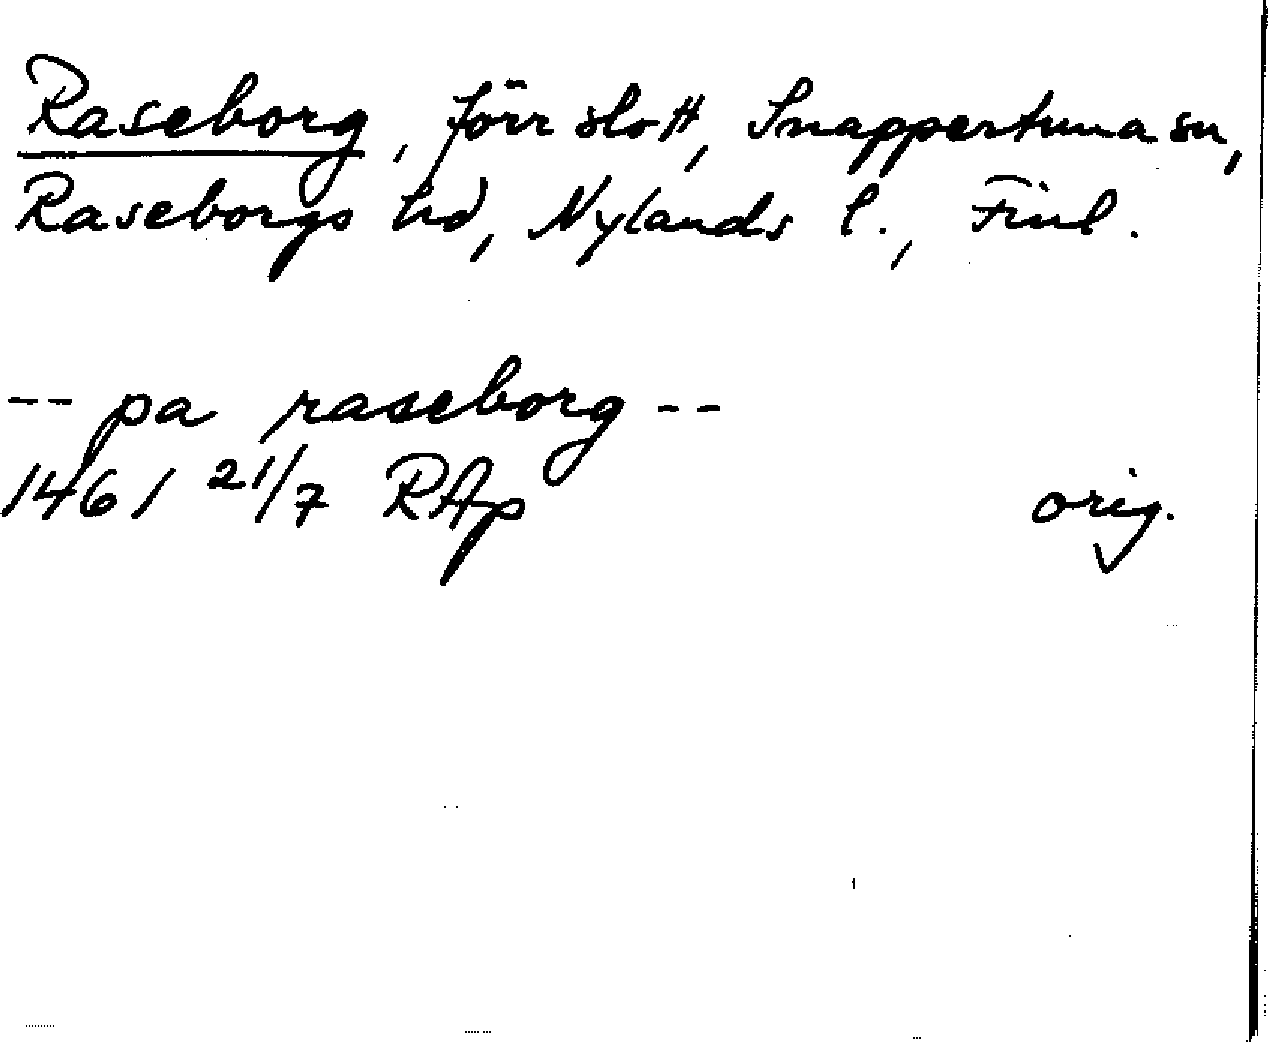 Raseborg, förr slott, Snappertuna sn,
Raseborgs hd, Nylands l., Finl.
-- pa raseborg --
1461 21/7 RAp orig.